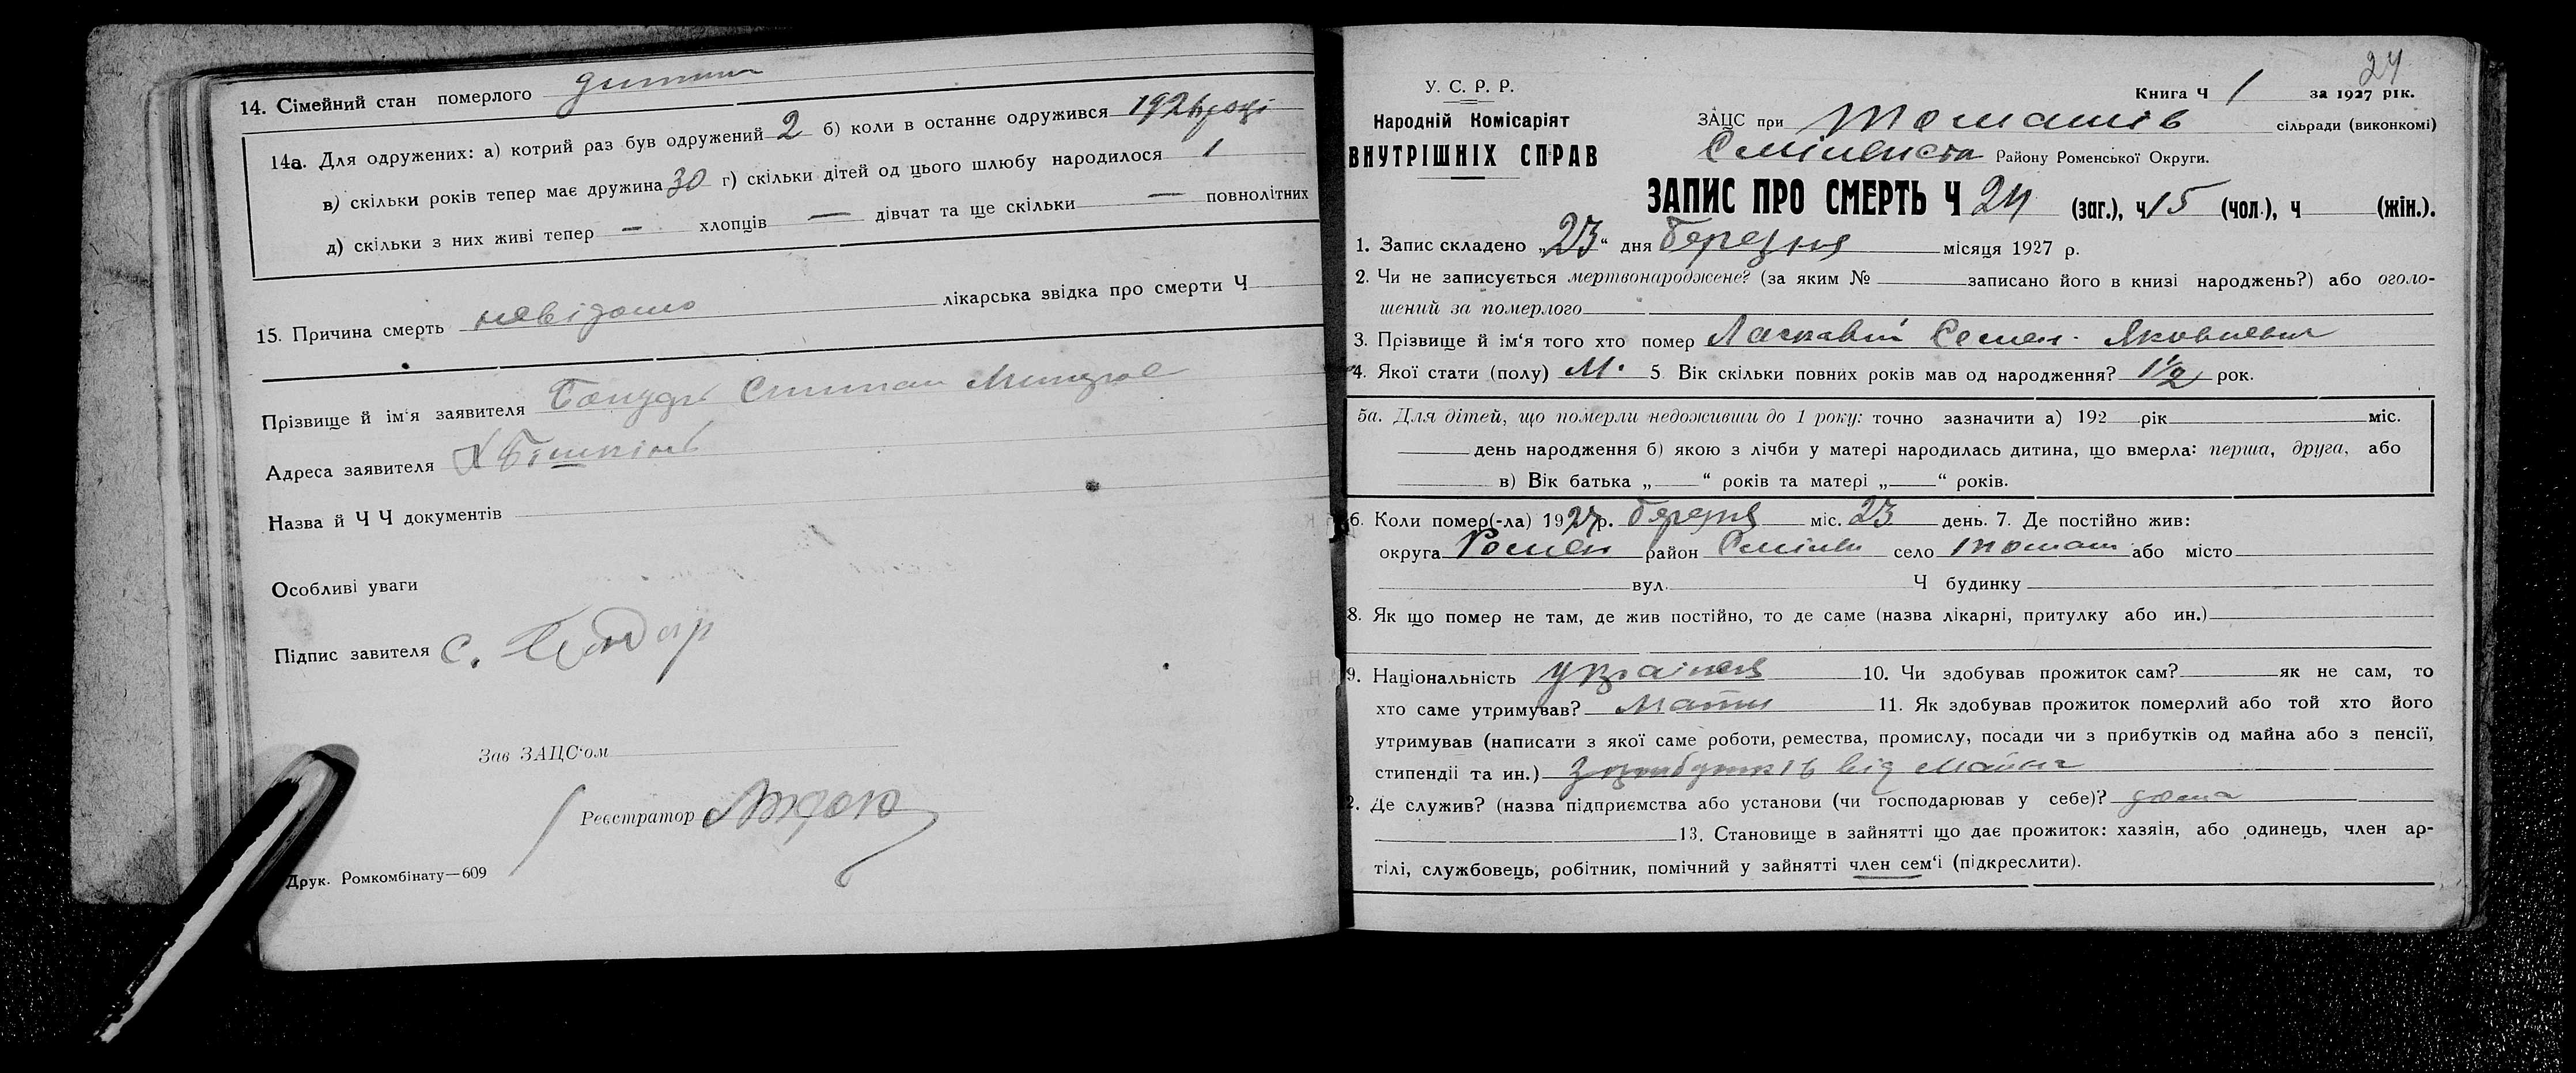 14. Сімейний стан померлого дитина
14а. Для одружених: а) котрий раз був одружений 2 б) коли в останнє одружився 1926 році
в) скільки років тепер має дружина 30 г) скільки дітей од цього шлюбу народилося 1
д) скільки з них живі тепер — хлопців — дівчат та ще скільки — повнолітних
15. Причина смерть невідомо лікарська звідка про смерти Ч
Прізвище й ім'я заявителя
Адреса заявителя
Назва й Ч Ч документів
Особливі уваги
Підпис завителя С. Бондар
Зав ЗАЦС'ом
Реєстратор
Друк. Ромкомбінату—609
24
У. С. Р. Р.
Книга Ч 1 за 1927 рік.
Народній Комісаріят
ЗАЦС при Томашів сільради (виконкомі)
ВНУТРІШНІХ СПРАВ
Району Роменської Округи.
ЗАПИС ПРО СМЕРТЬ Ч 24 (заг.), ч 15 (чол.), ч (жін.).
1. Запис складено „23“ дня березня місяця 1927 р.
2. Чи не записується мертвонароджене? (за яким № записано його в книзі народжень?) або оголо-
шений за померлого
3. Прізвище й ім'я того хто помер Ласкавий Семен Якович
4. Якої стати (полу) М. 5 Вік скільки повних років мав од народження? 1½ рок.
5а. Для дітей, що померли недоживши до 1 року: точно зазначити а) 192 рік міс.
день народження б) якою з лічби у матері народилась дитина, що вмерла: перша, друга, або
в) Вік батька „ “ років та матері „ “ років.
6. Коли помер(-ла) 1927р. березня міс. 23 день. 7. Де постійно жив:
округа Ромен район Смілян село Томаш або місто
вул. Ч будинку
8. Як що помер не там, де жив постійно, то де саме (назва лікарні, притулку або ин.)
9. Національність українец 10. Чи здобував прожиток сам? як не сам, то
хто саме утримував? Мати 11. Як здобував прожиток померлий або той хто його
утримував (написати з якої саме роботи, ремества, промислу, посади чи з прибутків од майна або з пенсії,
стипендії та ин.) з прибутків від майна
2. Де служив? (назва підприємства або установи (чи господарював у себе)? дома
13. Становище в зайнятті що дає прожиток: хазяїн, або одинець, член ар-
тілі, службовець, робітник, помічний у зайнятті член сем'ї (підкреслити).